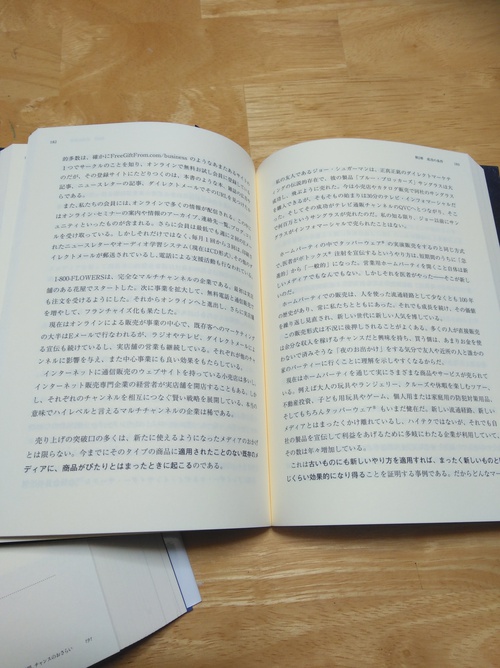 182
的多数は、確かにFreeGiftFrom.com/business のようなあまたあるサイトの
1つでサークルのことを知り、オンラインで無料お試し会員に登録し
のだが、その登録サイトにたどりつくのは、本書のような本、雑誌の広告
記事、ニュースレターの記事、ダイレクトメールでそのURLを見つけ
また、私たちの会員には、オンラインで多くの情報が配信される。
はオンライン・セミナーの案内や情報のアーカイブ、
ュニティといったものが含まれる。さらに会員は最低でも週に
を受け取っている。しかしそれだけではなく、毎月1回から3回、
れたニュースレターやオーディオ学習システム（現在はCD形式）、
イレクトメールが郵送されているし、電話による支援活動も行なわれている
1-800-FLOWERSは、完全なマルチチャンネルの企業である。最初は
舗のある花屋でスタートした。次に事業を拡大して、無料電話と通信販売
も注文を受けるようにした。それからオンラインへと進出し、さらに実店舗
を増やして、フランチャイズ化も果たした。
現在はオンラインによる販売が事業の中心で、既存客へのマーケティング
の大半はEメールで行なわれるが、ラジオやテレビ、ダイレクトメールに
る宣伝も続けているし、実店舗の営業も継続している。それぞれが他のチャ
ンネルに影響を与え、また中心事業にも良い効果をもたらしている。
インターネットに通信販売のウェブサイトを持っている小売店は多いし、
インターネット販売専門企業の経営者が実店舗を開店することもある。しか
し、それぞれのチャンネルを相互につなぐ賢い戦略を展開している、本当の
意味でハイレベルと言えるマルチチャンネルの企業は稀である。
売り上げの突破口の多くは、新たに使えるようになったメディアのおかげ
とは限らない。今までにそのタイプの商品に適用されたことのない既存のメ
ディアに、商品がぴたりとはまったときに起こるのである。
私の友人であるジョー・シュガーマンは、正真正銘のダイレクトマーケ
ティングの伝説的存在で、彼の製品「ブルー・ブロッカーズ」サングラスは大
成功し、飛ぶように売れた。今は小売店やカタログ販売で同社のサングラス
を購入できるが、そもそもの始まりは30分のテレビ・インフォマーシャルだ
った。そしてその成功がテレビ通販チャンネルの成功へとつながり、そこ
で何百万というサングラスが売れたのだ。私の知る限り、ジョー以前にサン
グラスがインフォマーシャルで売られたことはない。
ホームパーティの中でタッパーウェア®の実演販売をするのと同じ方式
で、医者がボトックス®注射を宣伝するというやり方は、短期間のうちに「急
進的」から「一般的」になった。営業用ホームパーティを開くこと自体は新
しいメディアでもなんでもない。しかしそれを医者がやった――そこが新し
いのだ。
ホームパーティでの販売は、人を使った流通経路として少なくとも100年
の歴史があり、常に私たちとともにあった。それでも成長を続け、その価値
を繰り返し見直され、新しい世代に新しい人気を博している。
この販売形式は不況に後押しされることがよくある。多くの人が直接販売
は余分な収入を稼げるチャンスだと興味を持ち、買う側は、あまりお金を使
わないで済みそうな「夜のお出かけ」をする気分で友人や近所の人と誰かの
家のパーティーに行くことに理解を示しやすくなるからだ。
現在はホームパーティを通じて実にさまざまな商品やサービスが売られて
いる。例えば大人の玩具やランジェリー、クルーズや休暇を楽しむツアー、
不動産投資、子ども用玩具やゲーム、個人用または家庭用の防犯対策用品、
そしてもちろんタッパーウェア®もいまだ健在だ。新しい流通経路、新しい
メディアとはまったくかけ離れているし、ハイテクではないが、それでも自
社の製品を宣伝して利益をあげるために多岐にわたる企業が利用していて、
その数は年々増加している。
これは古いものにも新しいやり方を適用すれば、まったく新しいものと同
じくらい効果的になり得ることを証明する事例である。だからどんなマー
197
チャンスのおさらい